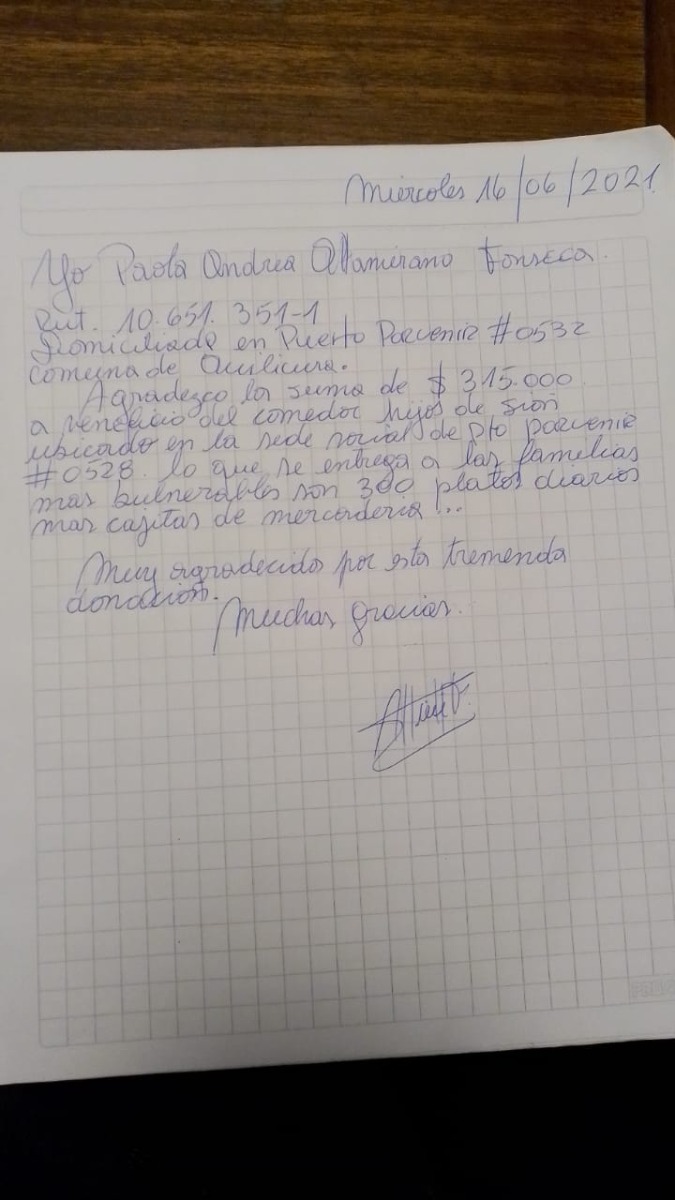 Miercoles 16/06/2021
Yo Paola Andrea Altamirano Fonseca.
Rut. 10.651.351-1
Domiciliada en Puerto Porvenir #0532
comuna de Quilicura.
Agradezco la suma de $ 315.000
a veneficio del comedor hijos de sion
ubicado en la sede social de pto porvenir
#0528. lo que se entrega a las familias
mas bulnerables son 300 platos diarios
mas cajitas de mercaderia...
Muy agradecidos por esta tremenda
donacion.
Muchas gracias.